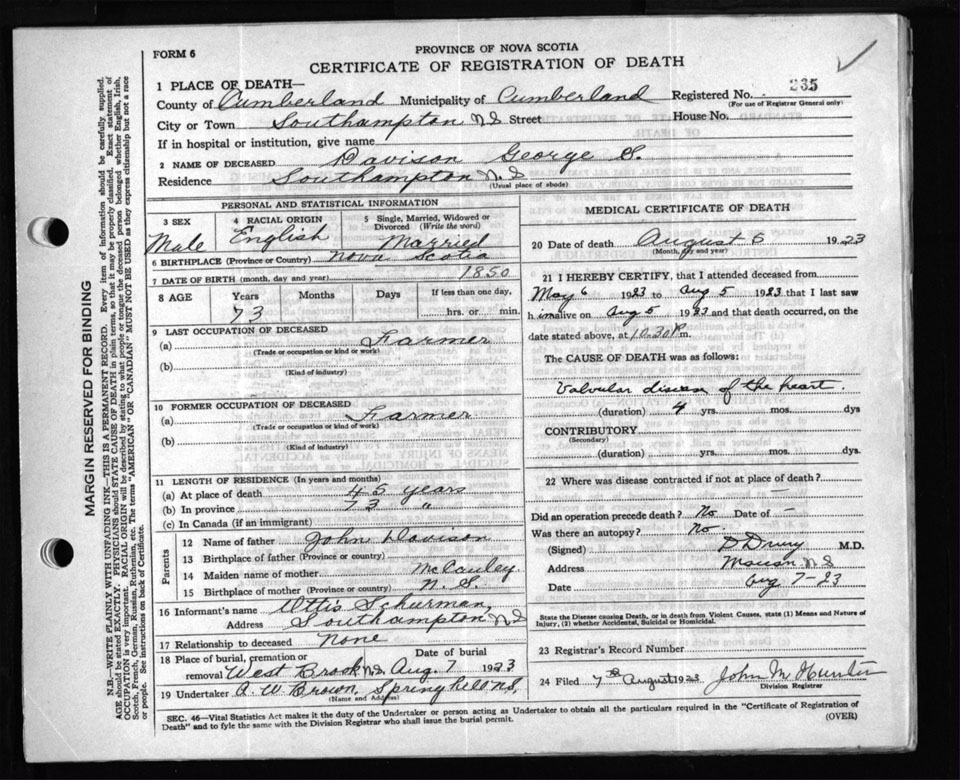 FORM 6
PROVINCE OF NOVA SCOTIA
CERTIFICATE OF REGISTRATION OF DEATH
1 PLACE OF DEATH—
Registered No. 235
(For use of Registrar General only)
County of Cumberland Municipality of Cumberland
City or Town Southampton N S Street House No.
If in hospital or institution, give name
2 NAME OF DECEASED Davison George S.
Residence Southampton N. S
(Usual place of abode)
PERSONAL AND STATISTICAL INFORMATION
3 SEX 4 RACIAL ORIGIN 5 Single, Married, Widowed or Divorced (Write the word)
Male English Married
6 BIRTHPLACE (Province or Country) Nova Scotia
7 DATE OF BIRTH (month, day and year) 1850
8 AGE Years Months Days If less than one day,
73 hrs. or min.
9 LAST OCCUPATION OF DECEASED
(a) Farmer
(Trade or occupation or kind of work)
(b)
(Kind of industry)
10 FORMER OCCUPATION OF DECEASED
(a) Farmer
(Trade or occupation or kind of work)
(b)
(Kind of industry)
11 LENGTH OF RESIDENCE (In years and months)
(a) At place of death 45 years
(b) In province 73 "
(c) In Canada (if an immigrant)
Parents
12 Name of father John Davison
13 Birthplace of father (Province or country)
14 Maiden name of mother McCauley
15 Birthplace of mother (Province or country) N. S.
16 Informant's name Ottis Schurman,
Address Southampton N S
17 Relationship to deceased None
18 Place of burial, cremation or removal West Brook N.S. Date of burial Aug. 7 1923
19 Undertaker A. W Brown, Springhill N.S.
(Name and Address)
MEDICAL CERTIFICATE OF DEATH
20 Date of death August 6 1923
(Month, day and year)
21 I HEREBY CERTIFY, that I attended deceased from
May 6 1923 to Aug 5 1923 that I last saw
h im alive on Aug 5 1923 and that death occurred, on the
date stated above, at 10.30 P.m.
The CAUSE OF DEATH was as follows:
Valvular disease of the heart.
(duration) 4 yrs. mos. dys
CONTRIBUTORY
(Secondary)
(duration) yrs. mos. dys.
22 Where was disease contracted if not at place of death? —
Did an operation precede death? No Date of —
Was there an autopsy? No.
(Signed) Drury M.D.
Address N S
Date Aug 7-23
State the Disease causing Death, or in death from Violent Causes, state (1) Means and Nature of
Injury, (2) whether Accidental, Suicidal or Homicidal.
23 Registrar's Record Number
24 Filed 7th August 1923 John M Hunter
Division Registrar
SEC. 46—Vital Statistics Act makes it the duty of the Undertaker or person acting as Undertaker to obtain all the particulars required in the "Certificate of Registration of
Death" and to fyle the same with the Division Registrar who shall issue the burial permit.
(OVER)
MARGIN RESERVED FOR BINDING
N.B.—WRITE PLAINLY WITH UNFADING INK—THIS IS A PERMANENT RECORD. Every item of information should be carefully supplied.
AGE should be stated EXACTLY. PHYSICIANS should STATE CAUSE OF DEATH in plain terms, so that it may be properly classified. Exact statement of
OCCUPATION is very important. RACIAL ORIGIN will be described by stating to what people or tongue the deceased person belonged whether English, Irish,
Scotch, French, German, Russian, Ruthenian, etc. The terms "AMERICAN" OR "CANADIAN" MUST NOT BE USED as they express citizenship but not a race
or people. See instructions on back of Certificate.